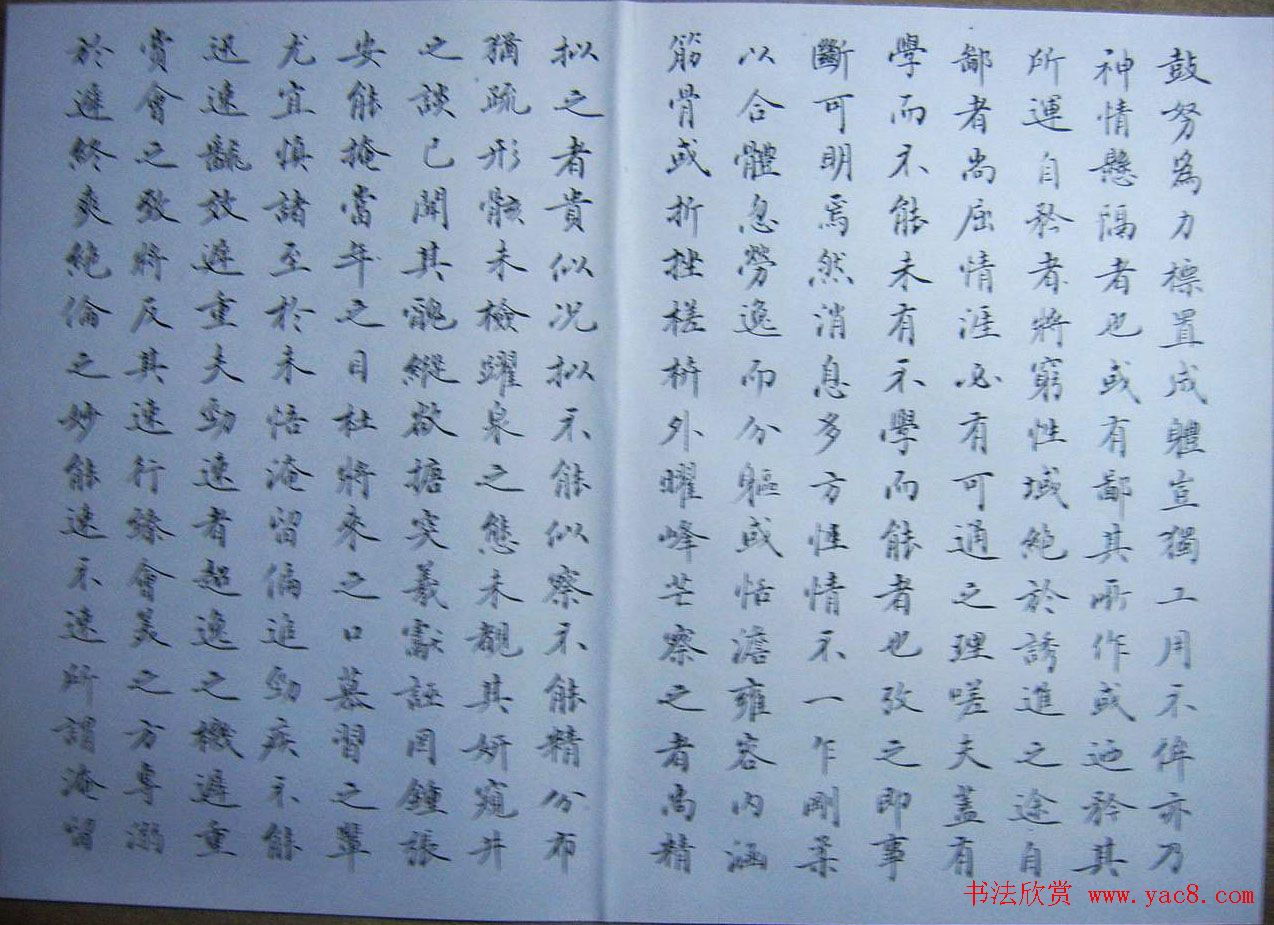 鼓努為力標置成軆豈獨工用不侔亦乃
神情懸隔者也或有鄙其所作或迺矜其
所運自矜者將窮性域絶於誘進之途自
鄙者尚屈情涯必有可通之理嗟夫蓋有
學而不能未有不學而能者也攷之即事
斷可明焉然消息多方性情不一乍剛柔
以合體忽勞逸而分軀或恬澹雍容內涵
筋骨或折挫槎枿外曜峰芒察之者尚精
拟之者貴似况拟不能似察不能精分布
猶疏形骸未檢躍泉之態未覩其妍窺井
之談已聞其醜縱欲搪突羲獻誣罔鍾張
安能掩當年之目杜將來之口慕習之輩
尤宜慎諸至於未悟淹留偏追勁疾不能
迅速翻效遲重夫勁速者超逸之機遲重
賞會之致將反其速行臻會美之方專溺
於遲終爽絶倫之妙能速不速所謂淹留
书法欣赏 www.yac8.com